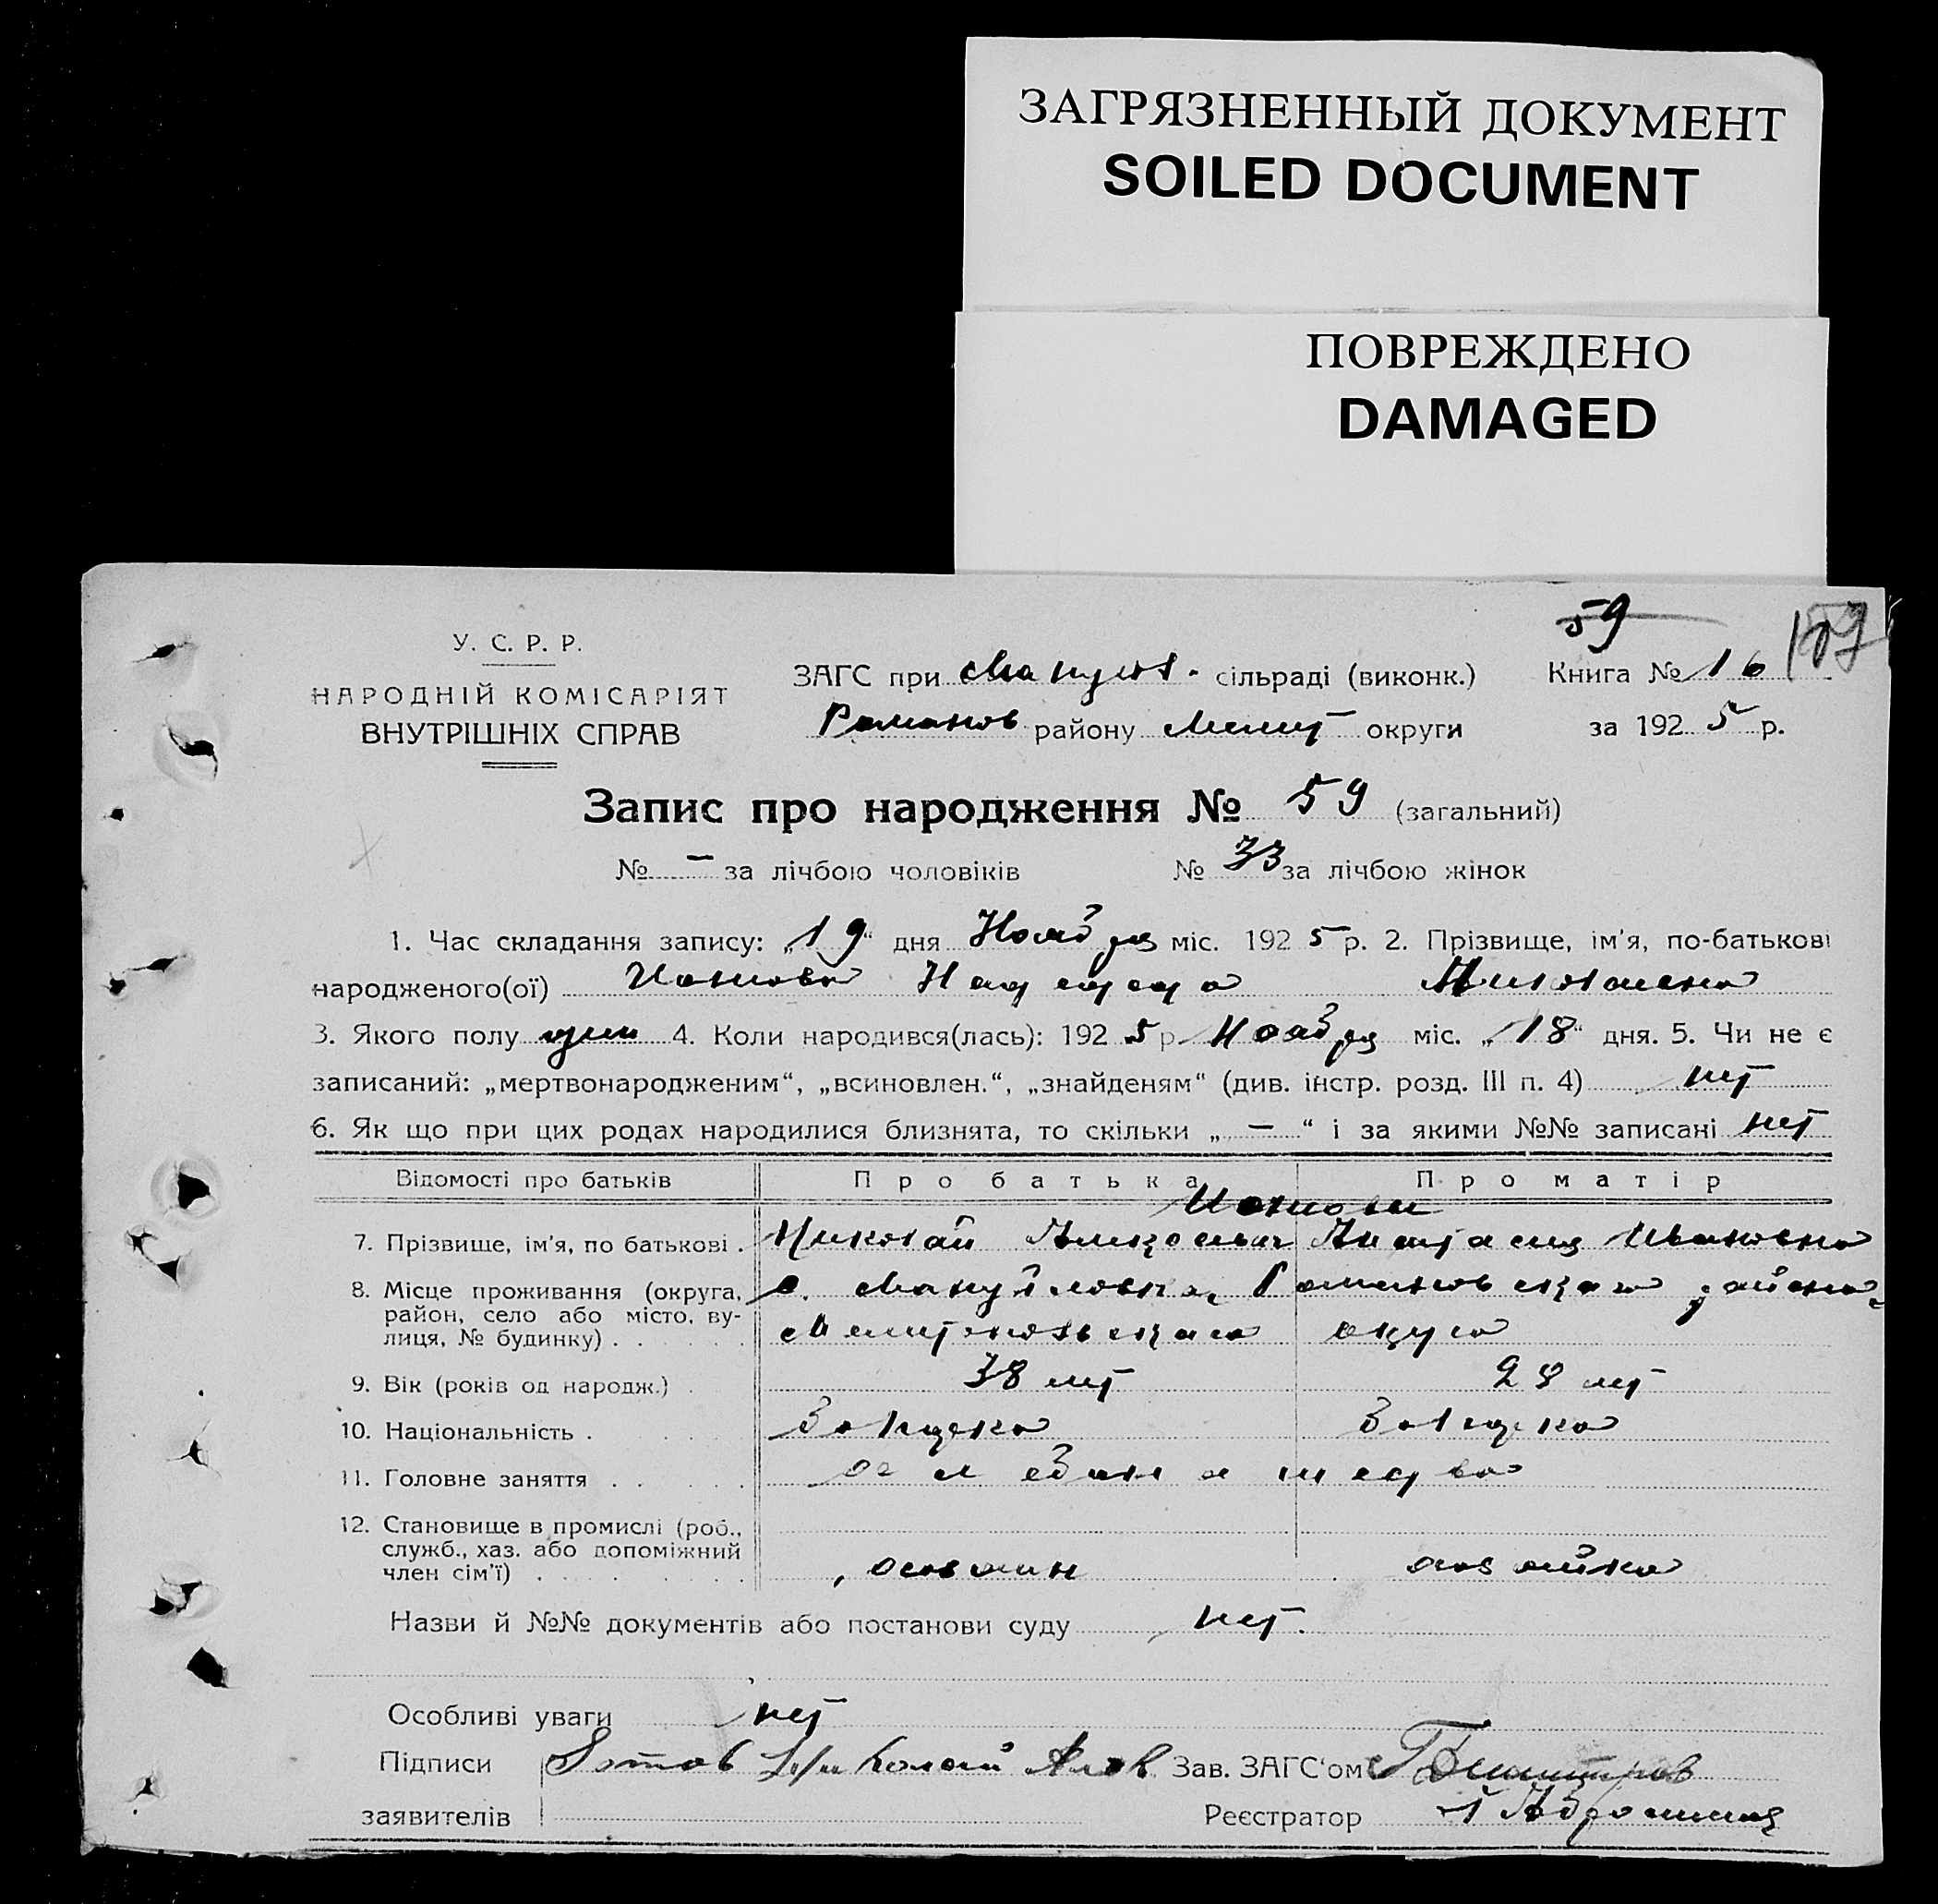 ЗАГРЯЗНЕННЫЙ ДОКУМЕНТ
SOILED DOCUMENT
ПОВРЕЖДЕНО
DAMAGED
59
У. С. Р. Р.
НАРОДНІЙ КОМІСАРІЯТ
ВНУТРІШНІХ СПРАВ
ЗАГС при Мануил. сільраді (виконк.) Книга № 16
Романов району Мелит округи за 1925 р.
Запис про народження № 59 (загальний)
№ — за лічбою чоловіків № 33 за лічбою жінок
1. Час складання запису: „19“ дня Ноября міс. 1925 р. 2. Прізвище, ім'я, по-батькові
народженого(ої) Надежда Николаевна
3. Якого полу жен 4. Коли народився(лась): 1925 р. Ноября міс. „18“ дня. 5. Чи не є
записаний: „мертвонародженим“, „всиновлен.“, „знайденям“ (див. інстр. розд. III п. 4) нет
6. Як що при цих родах народилися близнята, то скільки „ — “ і за якими №№ записані нет
Відомості про батьків Про батька Про матір
7. Прізвище, ім'я, по батькові . Николай Алексеевич Анастасия Ивановна
8. Місце проживання (округа, с. Мануйловка, Романовского района,
район, село або місто, ву-
лиця, № будинку) . Мелитопольского округа
9. Вік (років од народж.) . 38 лет 28 лет
10. Національність .
11. Головне заняття . . хлебопашество
12. Становище в промислі (роб.,
служб., хаз. або допоміжний
член сім'ї) . хозяин хозяйка
Назви й №№ документів або постанови суду нет.
Особливі уваги нет
Підписи Николай Зав. ЗАГС'ом
заявителів Реєстратор